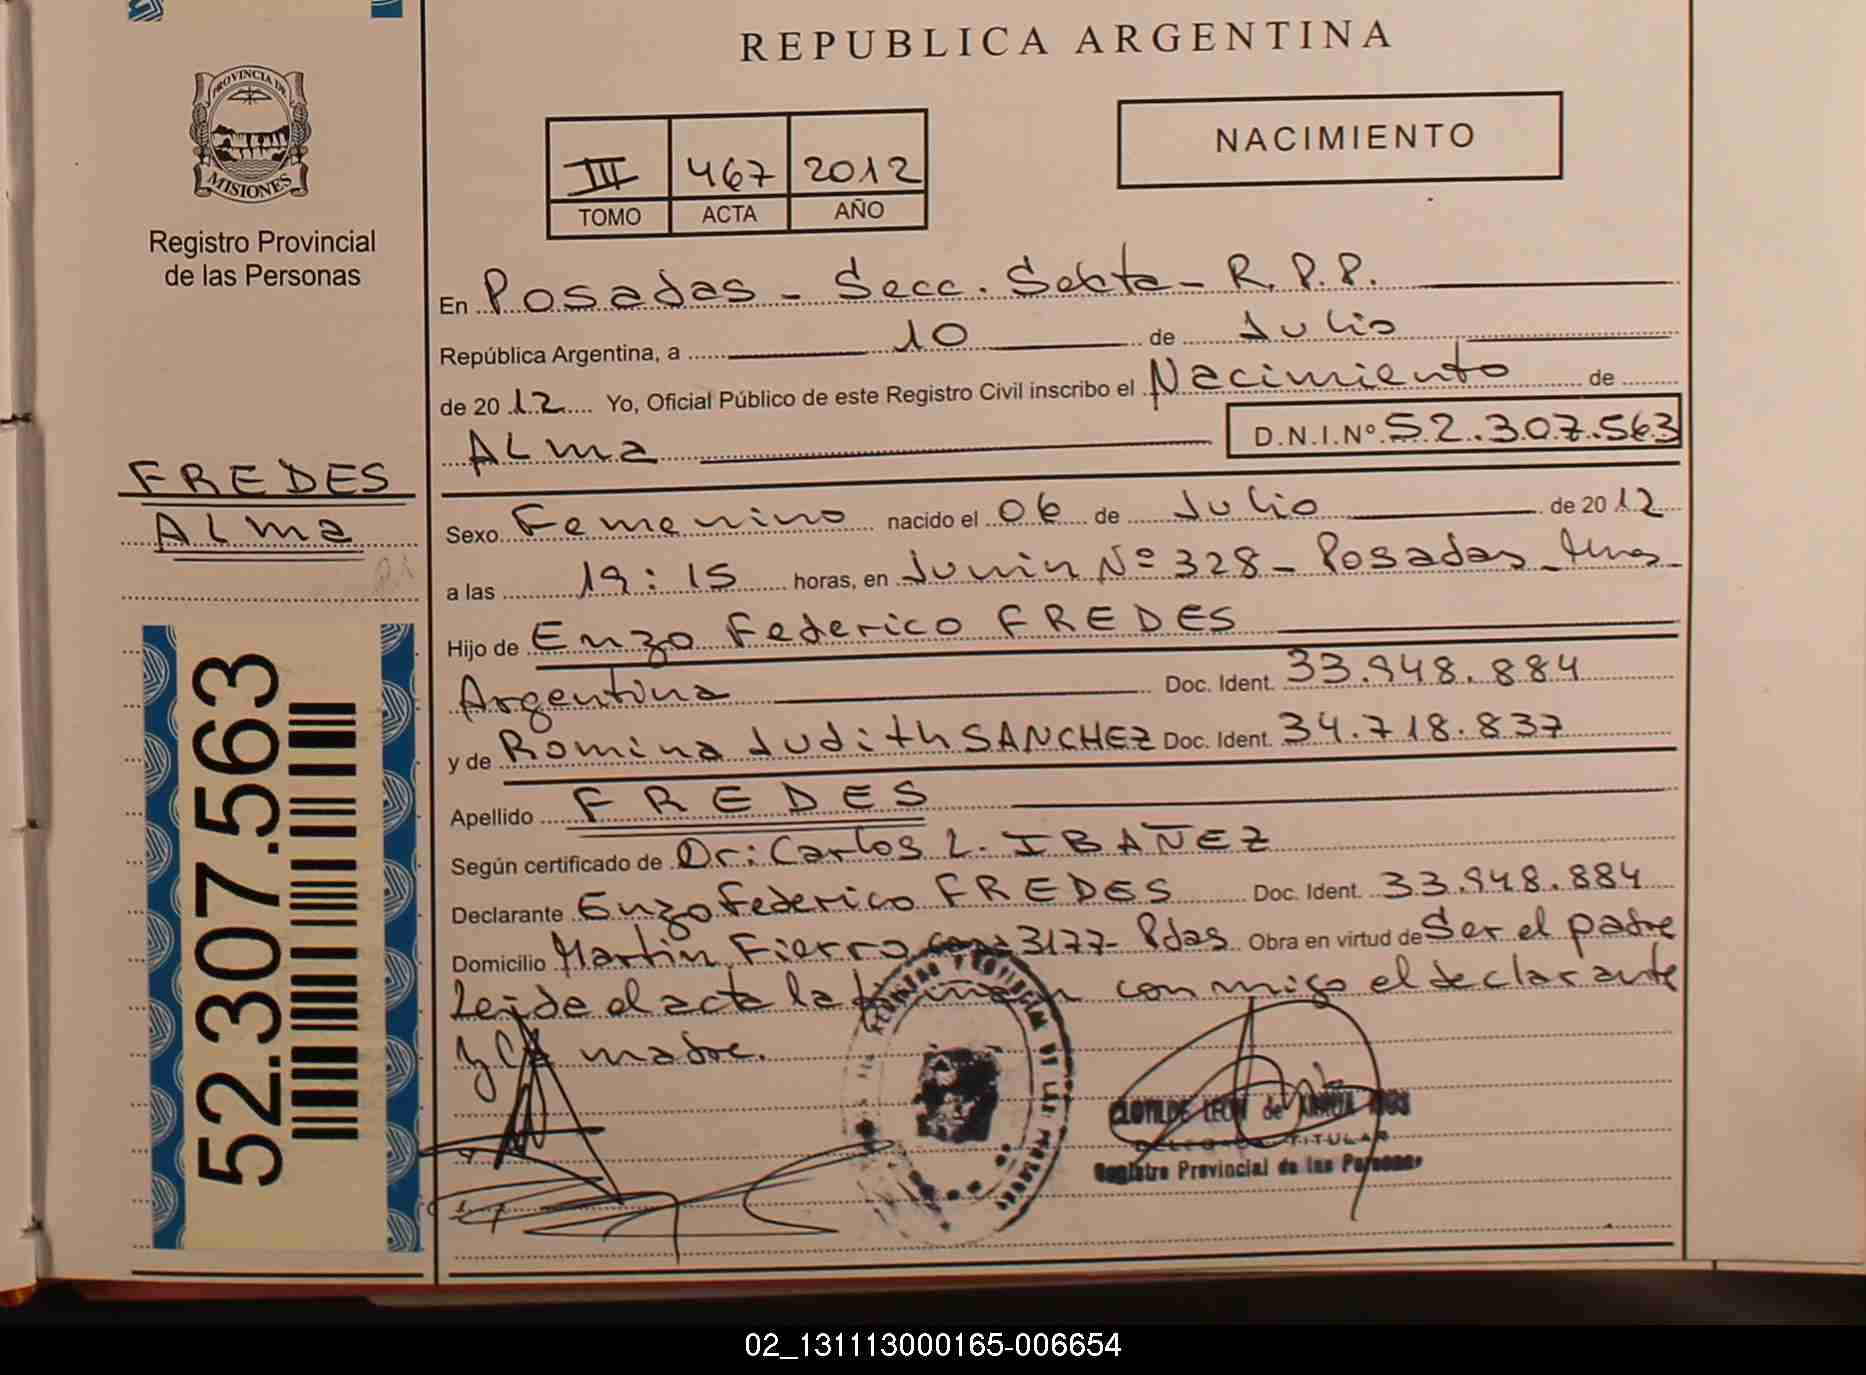 REPUBLICA ARGENTINA
PROVINCIA DE
MISIONES
Registro Provincial
de las Personas
III 467 2012
TOMO ACTA AÑO
NACIMIENTO
En Posadas - Secc. Sexta - R.P.P.
República Argentina, a 10 de Julio
de 2012 Yo, Oficial Público de este Registro Civil inscribo el Nacimiento de
ALma D.N.I.Nº 52.307.563
FREDES
ALma
Sexo Femenino nacido el 06 de Julio de 2012
a las 19:15 horas, en Junin Nº 328 - Posadas - Mnes
Hijo de Enzo Federico FREDES
Argentina Doc. Ident. 33.948.884
y de Romina Judith SANCHEZ Doc. Ident. 34.718.837
Apellido FREDES
Según certificado de Dr: Carlos L. IBAÑEZ
Declarante Enzo Federico FREDES Doc. Ident. 33.948.884
Domicilio Martin Fierro casa 3177- Pdas Obra en virtud de Ser el padre
Leida el acta la firman conmigo el declarante
y la madre.
52.307.563
REGISTRO PROVINCIAL DE LAS PERSONAS
CLOTILDE LEON de
DELEGADA TITULAR
Registro Provincial de las Personas
02_131113000165-006654